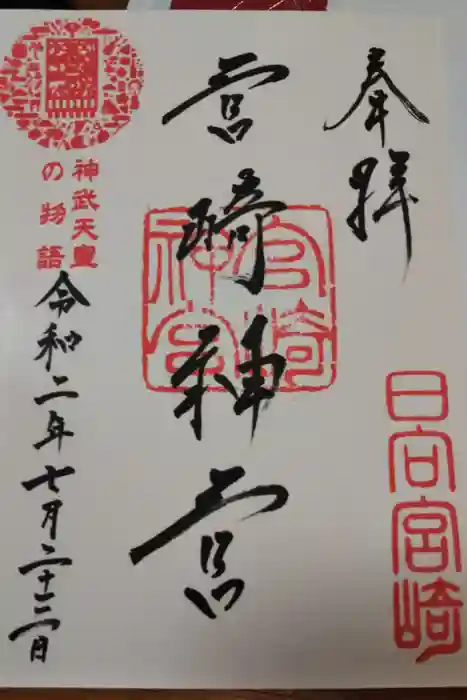 奉拝
日向宮崎
宮崎神宮
宮崎神宮
神武天皇
の物語
令和二年七月二十三日